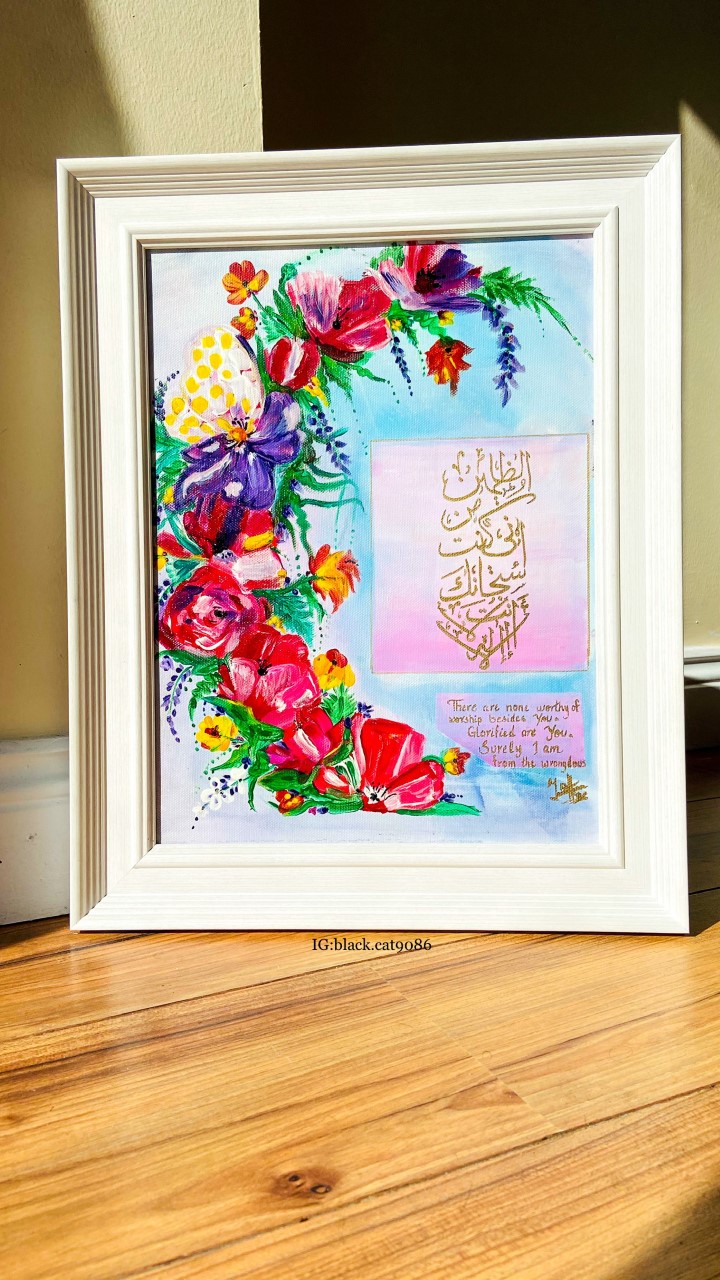 لا إله إلا
أنت
سبحانك
إنى كنت
من
الظلمين
There are none worthy of
worship besides You.
Glorified are You.
Surely I am
from the wrongdous
IG:black.cat9086